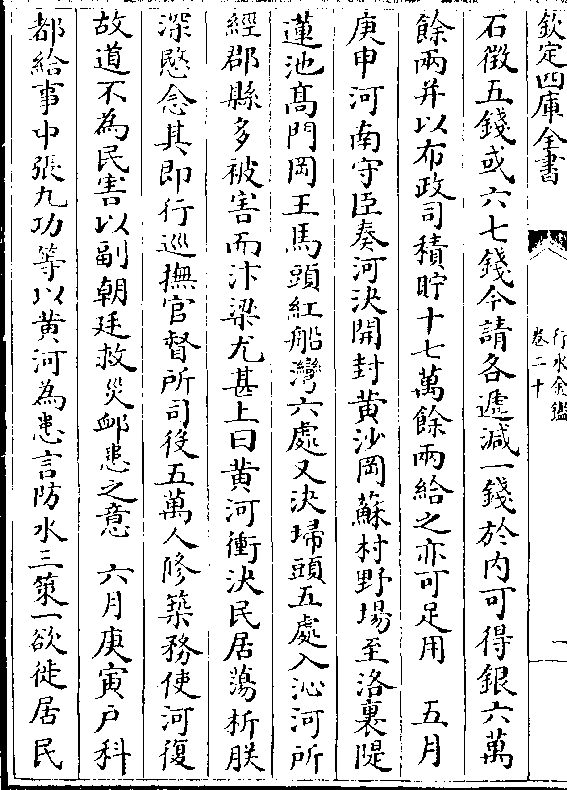 欽定四庫全書
行水金鑑
卷二十
一
石徴五錢或六七錢今請各遞減一錢於内可得銀六萬
餘兩并以布政司積貯十七萬餘兩給之亦可足用　五月
庚申河南守臣奏河決開封黄沙岡蘇村野場至洛裏隄
蓮池髙門岡王馬頭紅船灣六處又決埽頭五處入沁河所
經郡縣多被害而汴梁尤甚上曰黄河衝決民居蕩析朕
深愍念其即行巡撫官督所司役五萬人修築務使河復
故道不為民害以副朝廷救災䘏患之意　六月庚寅户科
都給事中張九功等以黄河為患言防水三策一欲徙居民